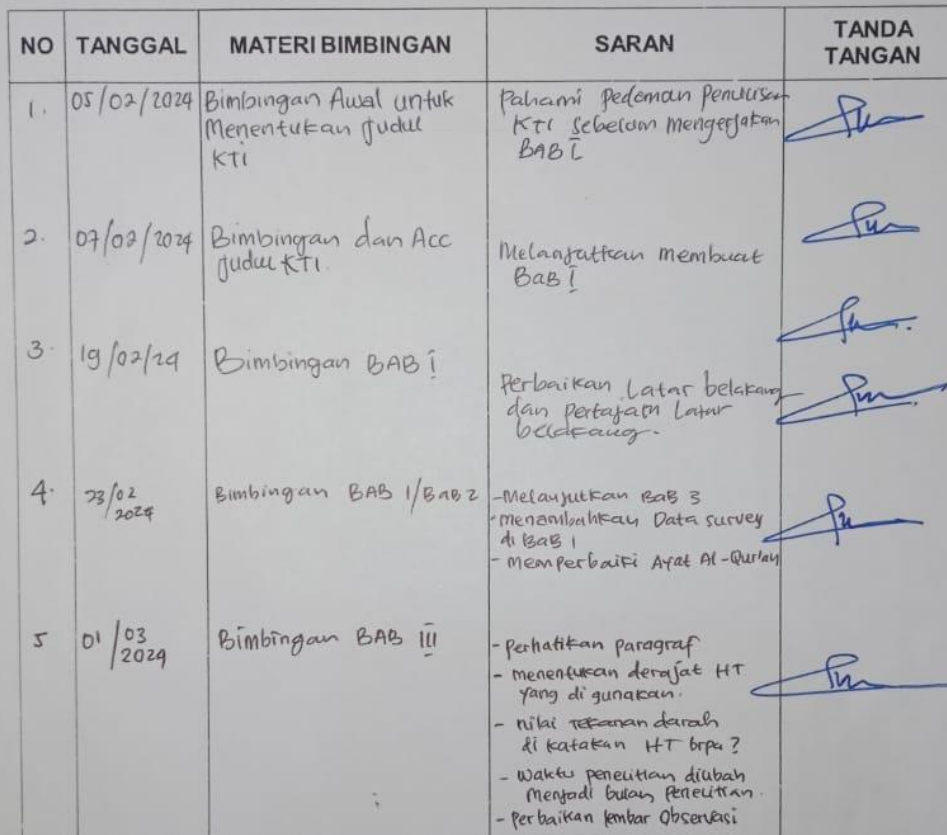 NO TANGGAL MATERI BIMBINGAN SARAN TANDA TANGAN
1. 05/02/2024 Bimbingan Awal untuk
Menentukan Judul
KTI
Pahami Pedoman Penulisan
KTI sebelum mengerjakan
BAB I
2. 07/02/2024 Bimbingan dan Acc
Judul KTI.
Melanjutkan membuat
BaB I
3. 19/02/24 Bimbingan BAB I
Perbaikan Latar belakang
dan pertajam Latar
belakang.
4. 23/02
2024
Bimbingan BAB 1/BAB 2
- Melanjutkan BaB 3
- menambahkan Data survey
di BaB 1
- memperbaiki Ayat Al-Qur'an
5 01/03
2024
Bimbingan BAB III
- Perhatikan paragraf
- menentukan derajat HT
yang di gunakan.
- nilai tekanan darah
di katakan HT brpa?
- Waktu penelitian diubah
menjadi bulan Penelitian.
- Perbaikan lembar Observasi